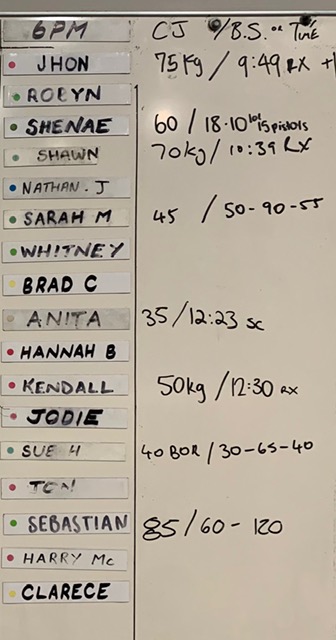 6PM CJ /B.S. or TIME
JHON 75Kg / 9:49 RX
ROBYN
SHENAE 60 / 18·10 15 pistols
SHAWN 70kg / 10:39 RX
NATHAN. J
SARAH M 45 / 50-90-55
WHITNEY
BRAD C
ANITA 35/12:23 SC
HANNAH B
KENDALL 50kg /12:30 RX
JODIE
SUE H 40 BOR / 30-65-40
SEBASTIAN 85/60-120
HARRY Mc
CLARECE